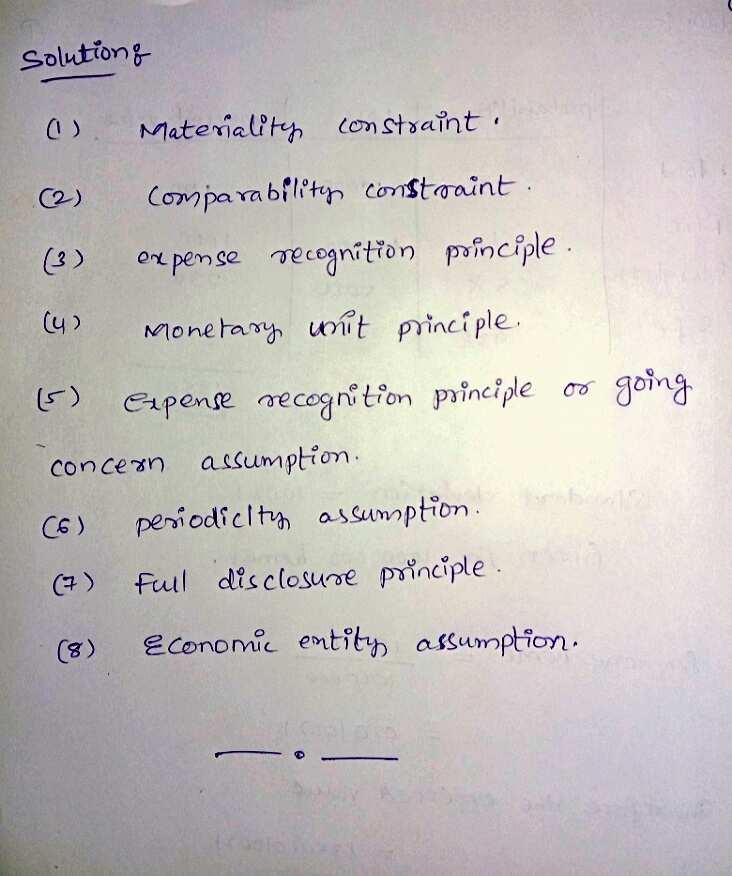 Solution:
(1) Materiality constraint.
(2) Comparability constraint.
(3) expense recognition principle.
(4) Monetary unit principle.
(5) Expense recognition principle or going
concern assumption.
(6) periodicity assumption.
(7) Full disclosure principle.
(8) Economic entity assumption.